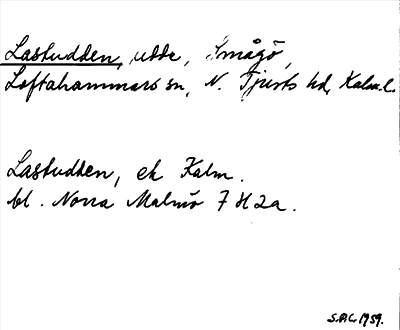 Lastudden, udde, Smågö,
Loftahammars sn, N. Tjusts hd, Kalm.l.
Lastudden, ek Kalm.
bl. Norra Malmö 7 H 2a.
S.A.C. 1959.